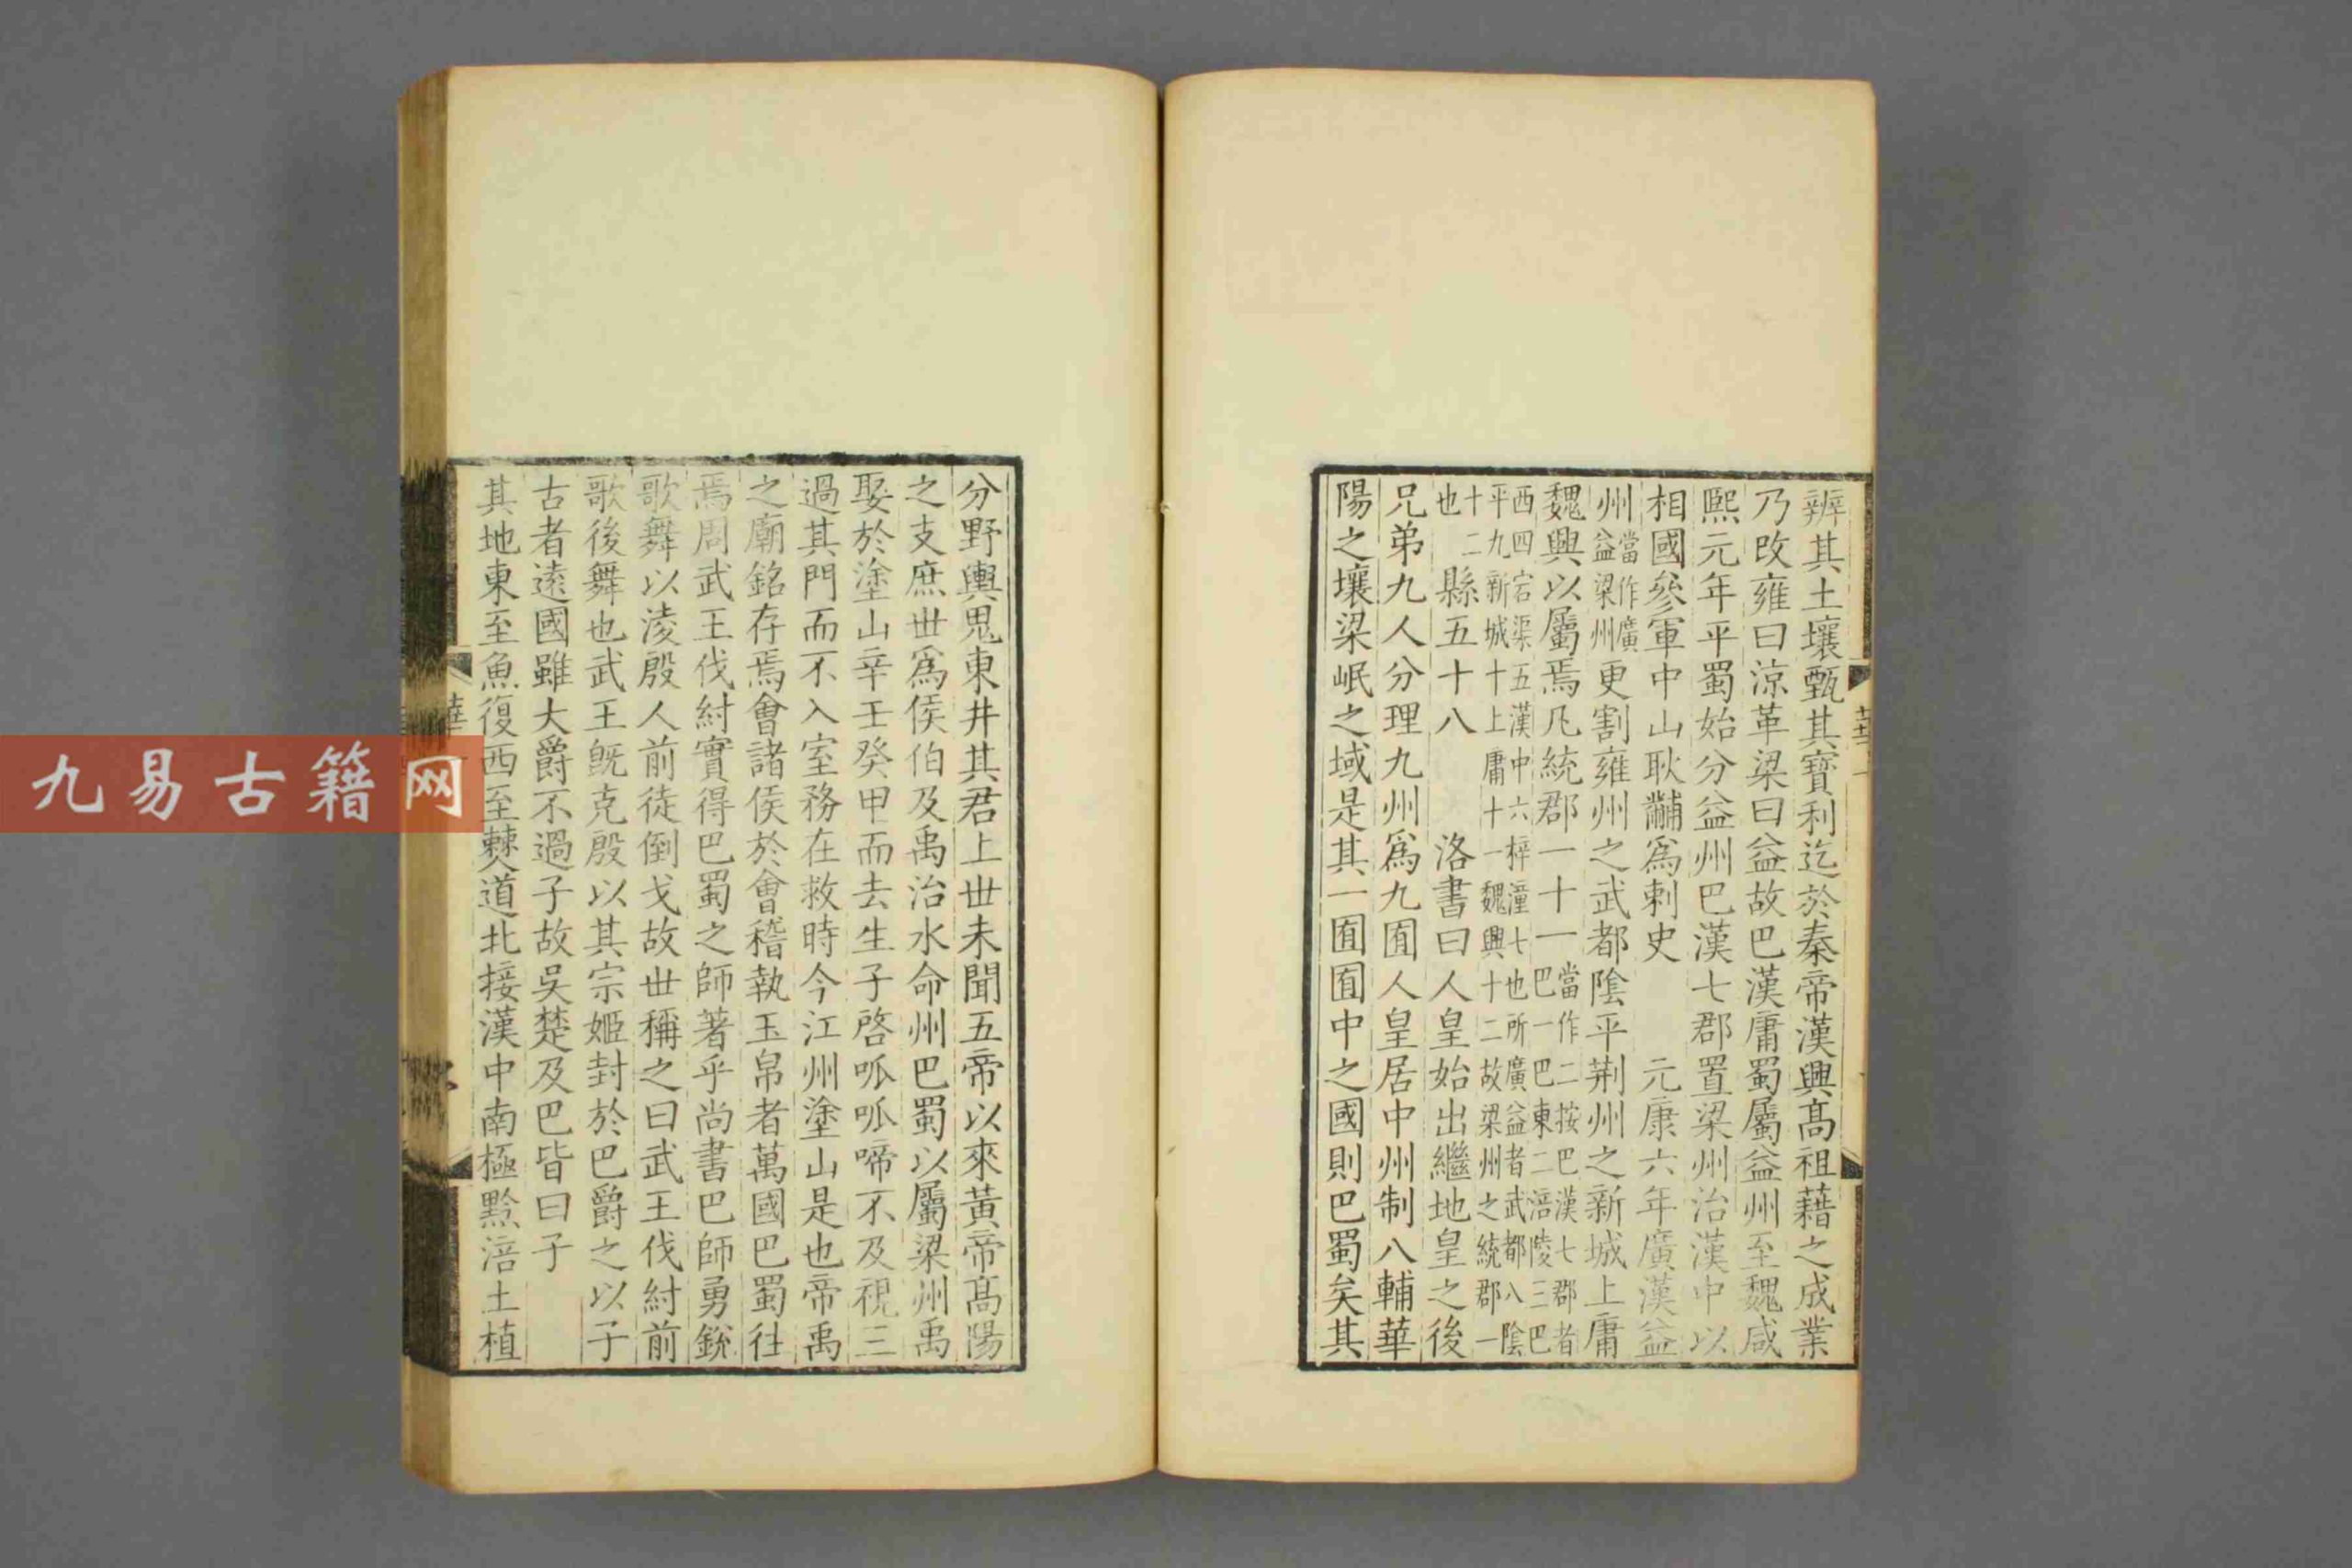 辨其土壤甄其寶利迄於秦帝漢興髙祖藉之成業
乃改雍曰涼革梁曰益故巴漢庸蜀屬益州至魏咸
熙元年平蜀始分益州巴漢七郡置梁州治漢中以
相國參軍中山耿黼爲剌史　元康六年廣漢益
州當作廣益梁州更割雍州之武都陰平荆州之新城上庸
魏興以屬焉凡統郡一十一當作二按巴漢七郡者巴一巴東二涪陵三巴
西四宕渠五漢中六梓潼七也所廣益者武都八陰
平九新城十上庸十一魏興十二故梁州之統郡一
十二也　縣五十八　洛書曰人皇始出繼地皇之後
兄弟九人分理九州爲九囿人皇居中州制八輔華
陽之壤梁岷之域是其一囿囿中之國則巴蜀矣其
華
一
分野輿鬼東井其君上世未聞五帝以來黃帝髙陽
之支庶世爲侯伯及禹治水命州巴蜀以屬梁州禹
娶於塗山辛壬癸甲而去生子啓呱呱啼不及視三
過其門而不入室務在救時今江州塗山是也帝禹
之廟銘存焉會諸侯於會稽執玉帛者萬國巴蜀往
焉周武王伐紂實得巴蜀之師著乎尚書巴師勇銳
歌舞以淩殷人前徒倒戈故世稱之曰武王伐紂前
歌後舞也武王旣克殷以其宗姬封於巴爵之以子
古者逺國雖大爵不過子故吳楚及巴皆曰子
其地東至魚復西至僰道北接漢中南極黔涪土植
華
九易古籍网